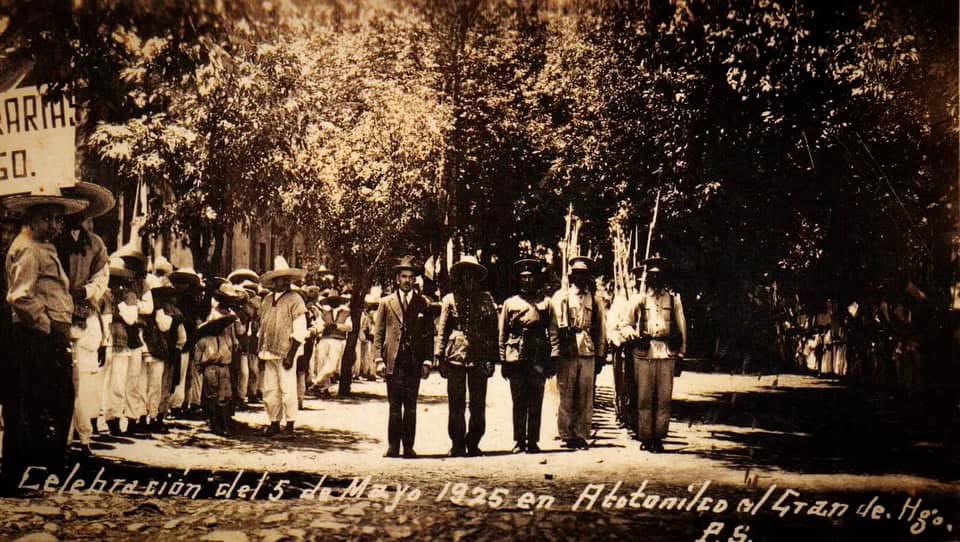 RARIAS
GO.
Celebración del 5 de Mayo 1925 en Atotonilco el Grande. Hgo.
P.S.